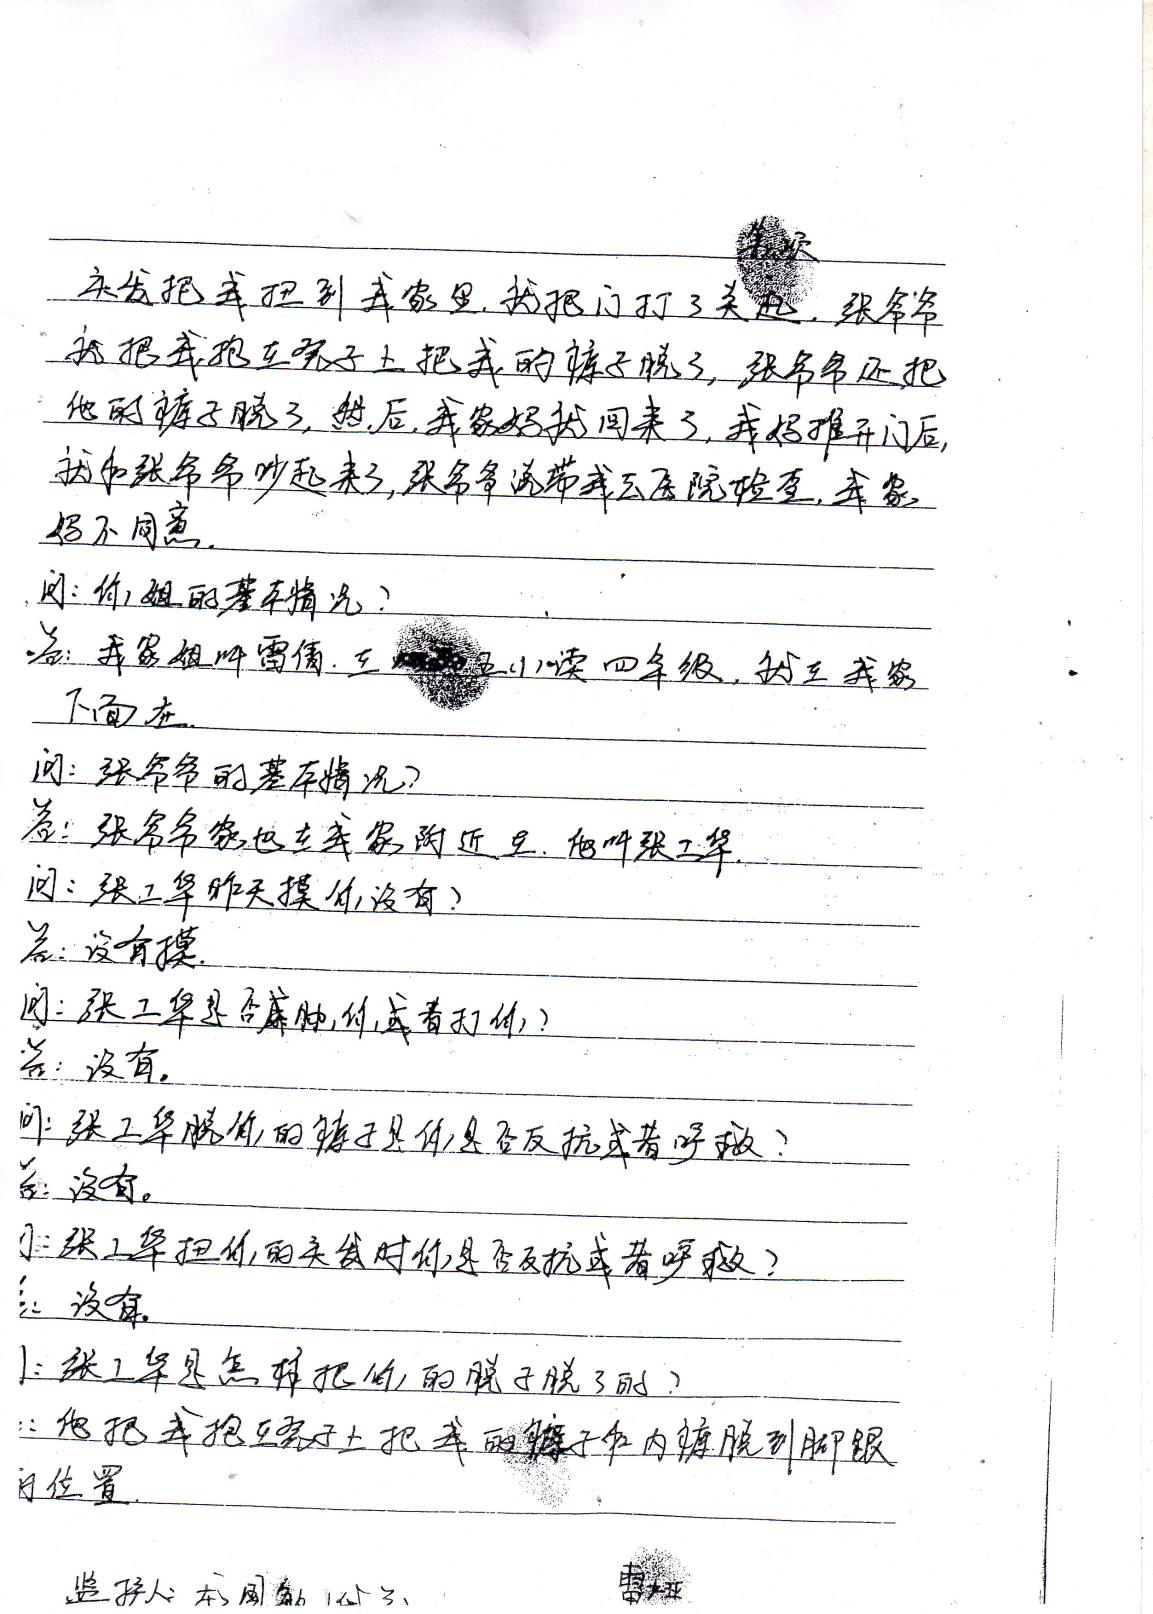 第2次
头发把我扭到我家里,我把门打了关起,张爷爷
就把我抱在凳子上把我的裤子脱了,张爷爷还把
他的裤子脱了,然后,我家妈就回来了,我妈推开门后,
就和张爷爷吵起来了,张爷爷说带我去医院检查,我家
妈不同意.
问:你姐的基本情况?
答:我家姐叫雷倩.在 五小读四年级,就在我家
下面在.
问:张爷爷的基本情况?
答:张爷爷家也在我家附近 . 他叫张工华.
问:张工华昨天摸你没有?
答:没有摸.
问:张工华是否威胁你或者打你?
答:没有。
问:张工华脱你的裤子是你是否反抗或者呼救?
答:没有。
问:张工华扭你的头发时你是否反抗或者呼救?
答:没有。
:张工华是怎样把你的脱子脱了的?
:他把我抱在凳子上把我的裤子和内裤脱到脚跟
的位置.
监护人:
雷